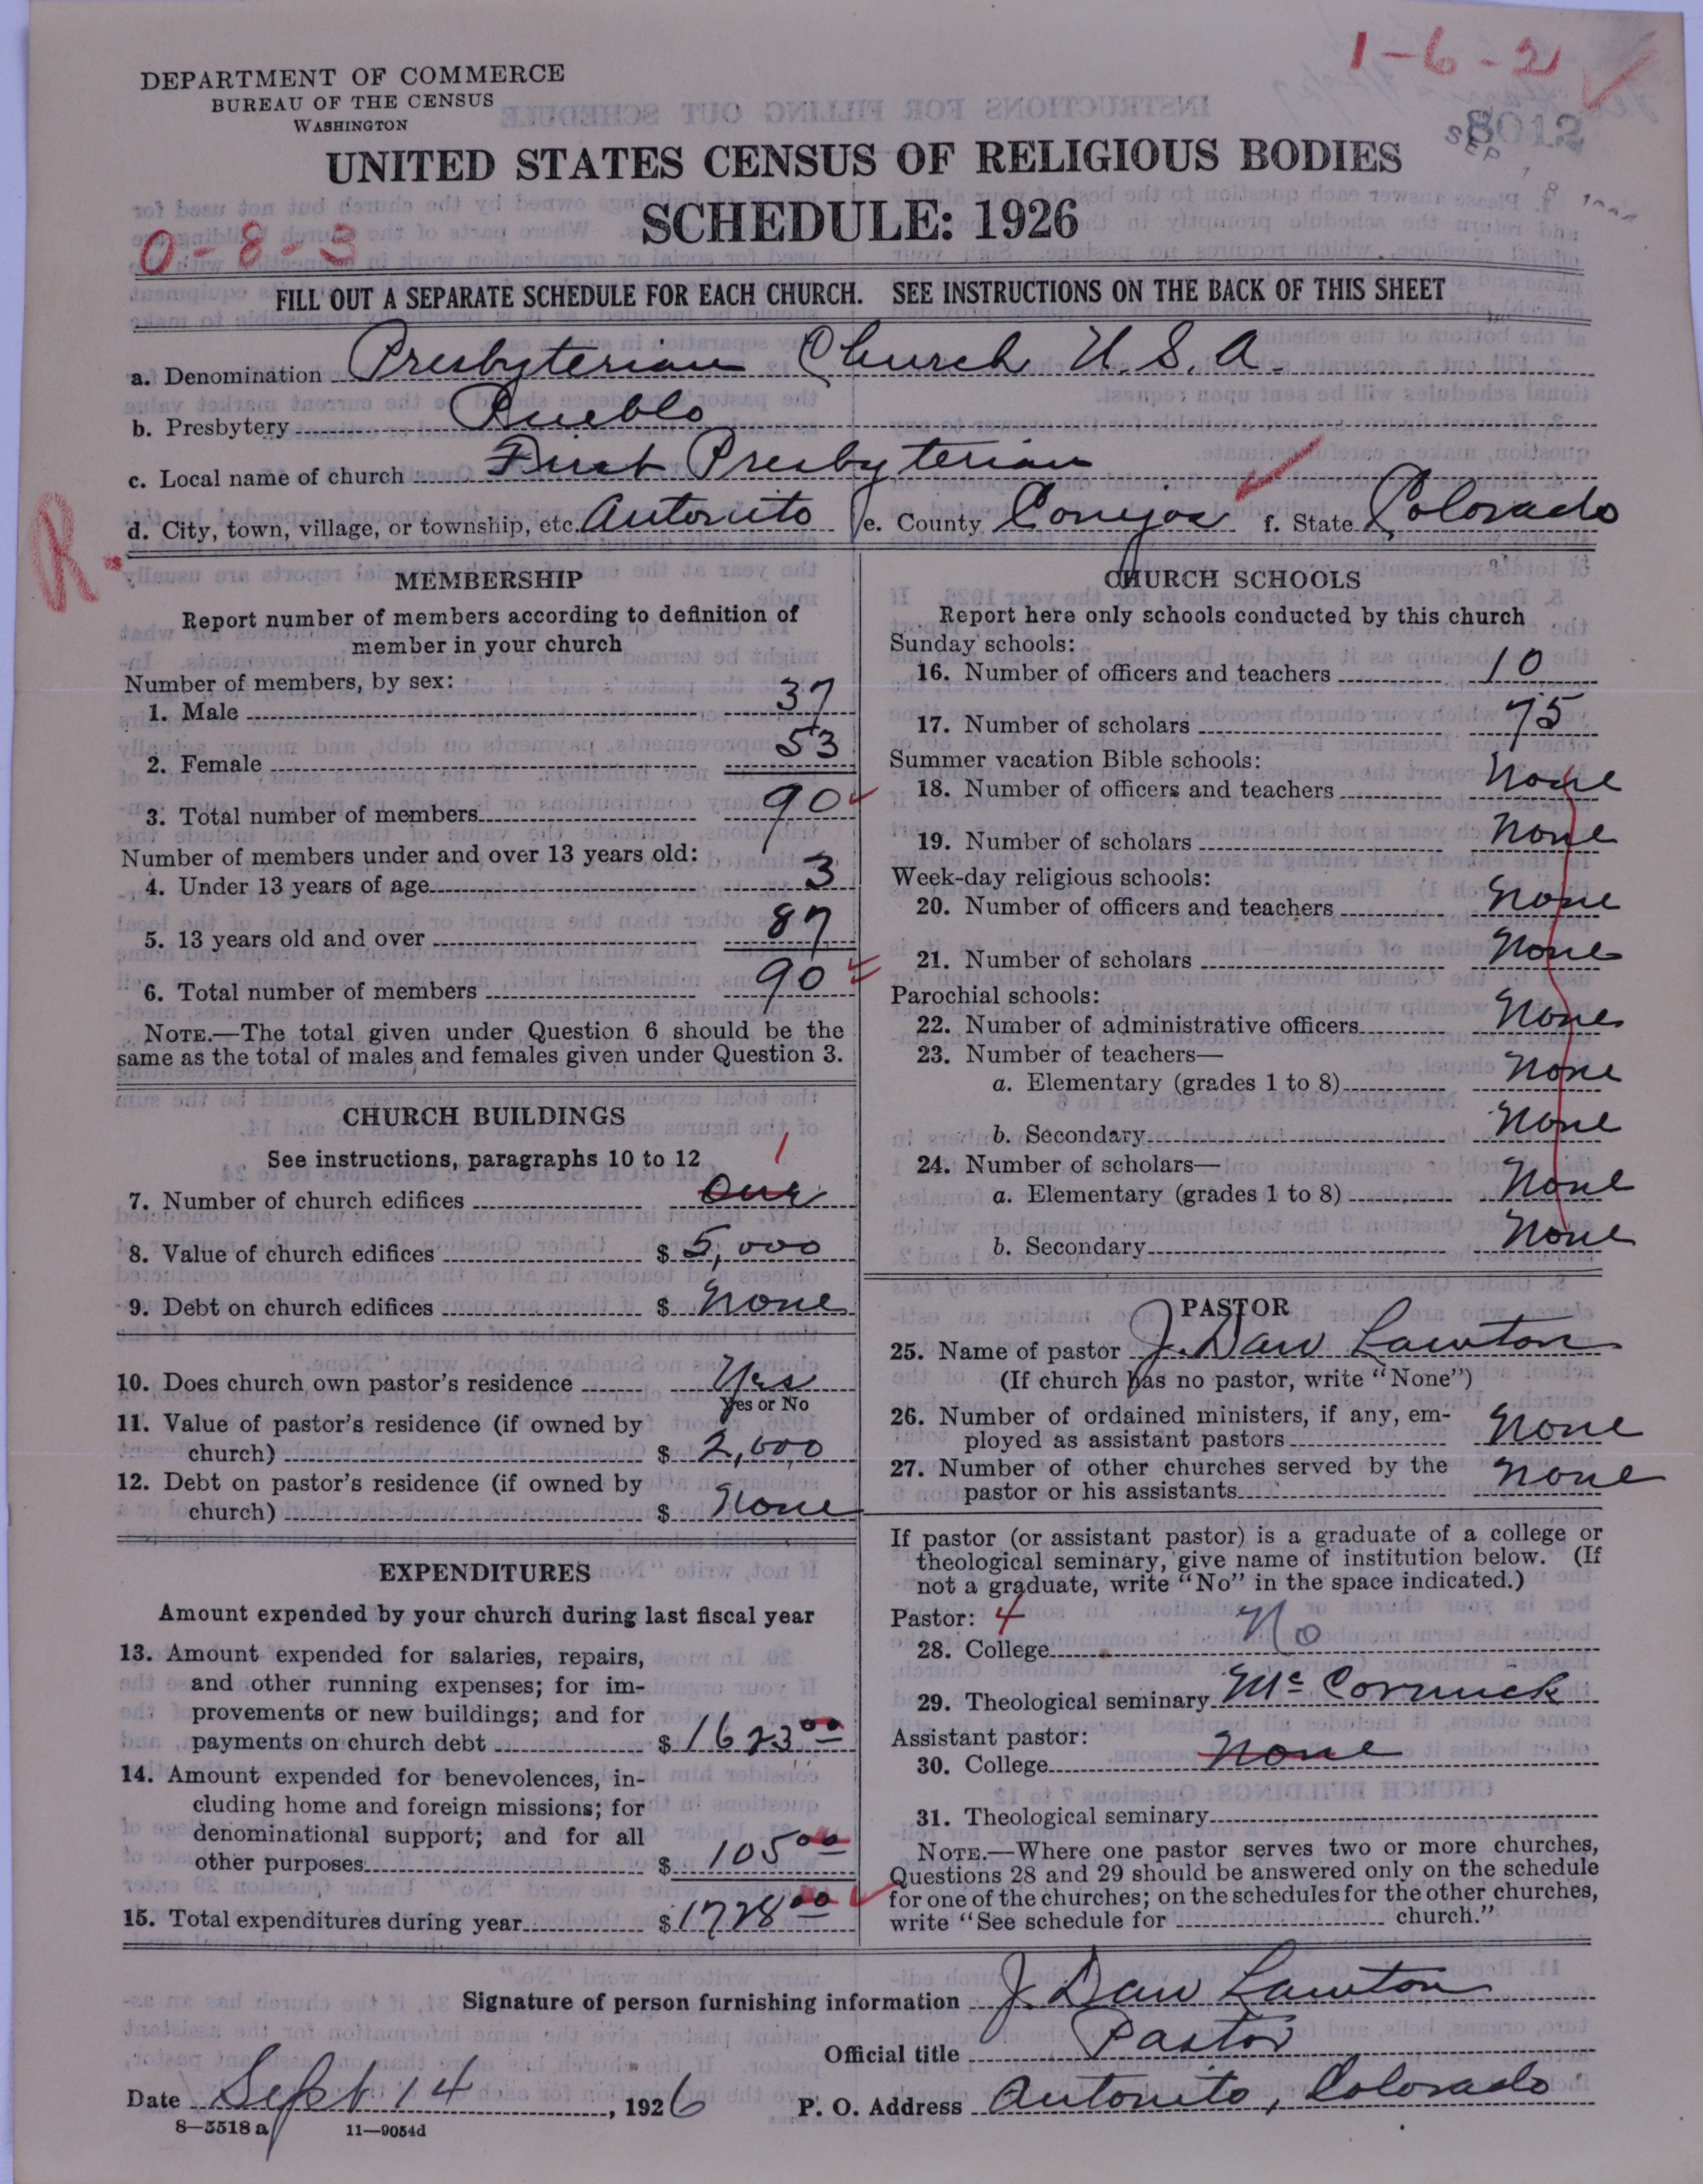 1-6-2
DEPARTMENT OF COMMERCE
BUREAU OF THE CENSUS
WASHINGTON
8012
SEP 18
UNITED STATES CENSUS OF RELIGIOUS BODIES
SCHEDULE: 1926
0-8-3
FILL OUT A SEPARATE SCHEDULE FOR EACH CHURCH. SEE INSTRUCTIONS ON THE BACK OF THIS SHEET
a. Denomination Presbyterian Church U.S.A.
b. Presbytery Pueblo
c. Local name of church First Presbyterian
d. City, town, village, or township, etc. Antonito e. County Conejos f. State Colorado
R-
MEMBERSHIP
Report number of members according to definition of
member in your church
Number of members, by sex:
1. Male 37
2. Female 53
3. Total number of members 90
Number of members under and over 13 years old:
4. Under 13 years of age 3
5. 13 years old and over 87
6. Total number of members 90
NOTE.—The total given under Question 6 should be the
same as the total of males and females given under Question 3.
CHURCH BUILDINGS
See instructions, paragraphs 10 to 12
1
7. Number of church edifices One
8. Value of church edifices $ 5,000
9. Debt on church edifices $ None
10. Does church own pastor's residence Yes
Yes or No
11. Value of pastor's residence (if owned by
church) $ 2,000
12. Debt on pastor's residence (if owned by
church) $ None
EXPENDITURES
Amount expended by your church during last fiscal year
13. Amount expended for salaries, repairs,
and other running expenses; for im-
provements or new buildings; and for
payments on church debt $ 1623 00
14. Amount expended for benevolences, in-
cluding home and foreign missions; for
denominational support; and for all
other purposes $ 105 00
15. Total expenditures during year $ 1728 00
CHURCH SCHOOLS
Report here only schools conducted by this church
Sunday schools:
16. Number of officers and teachers 10
17. Number of scholars 75
Summer vacation Bible schools:
18. Number of officers and teachers None
19. Number of scholars None
Week-day religious schools:
20. Number of officers and teachers None
21. Number of scholars None
Parochial schools:
22. Number of administrative officers None
23. Number of teachers—
a. Elementary (grades 1 to 8) None
b. Secondary None
24. Number of scholars—
a. Elementary (grades 1 to 8) None
b. Secondary None
PASTOR
25. Name of pastor J. Daw Lawton
(If church has no pastor, write "None")
26. Number of ordained ministers, if any, em-
ployed as assistant pastors None
27. Number of other churches served by the
pastor or his assistants None
If pastor (or assistant pastor) is a graduate of a college or
theological seminary, give name of institution below. (If
not a graduate, write "No" in the space indicated.)
Pastor: 4
28. College No
29. Theological seminary McCormick
Assistant pastor:
30. College None
31. Theological seminary
NOTE.—Where one pastor serves two or more churches,
Questions 28 and 29 should be answered only on the schedule
for one of the churches; on the schedules for the other churches,
write "See schedule for church."
Signature of person furnishing information J. Daw Lawton
Official title Pastor
Date Sept 14, 1926 P. O. Address Antonito, Colorado
8—5518 a 11—9054d